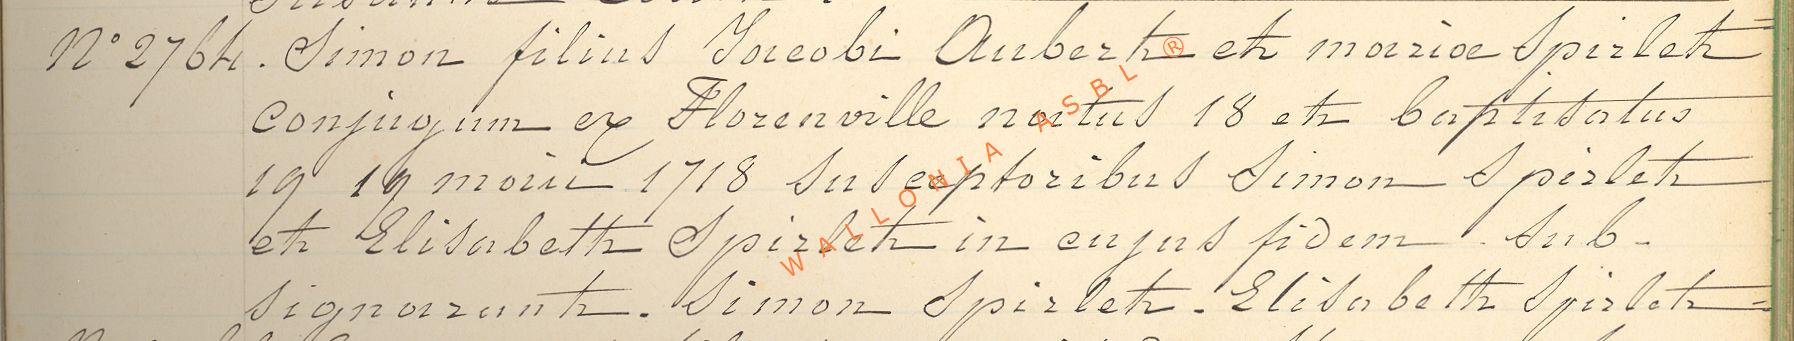 N° 2764. Simon filius Jacobi Aubert et mariæ Spirlet
conjugum ex Florenville natus 18 et baptisatus
19 19 maii 1718 susceptoribus Simon Spirlet
et Elisabeth Spirlet in cujus fidem sub-
signarunt. Simon Spirlet. Elisabeth Spirlet
WALLONIA ASBL ®